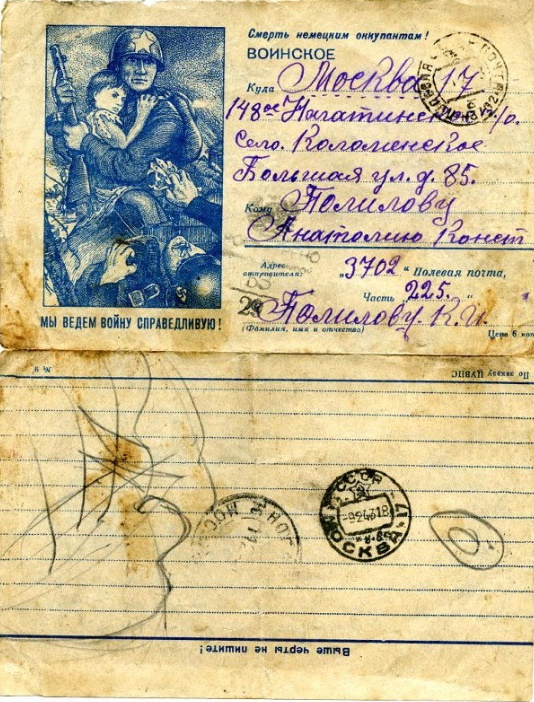 Смерть немецким оккупантам!
ВОИНСКОЕ
Куда Москва 17
148ое Нагатинск п/о.
Село. Коломенское
Большая ул. д. 85.
Кому Полилову
Анатолию Конст
Адрес отправителя: 3702 Полевая почта,
Часть 225.
29
Полилову. К.И.
(Фамилия, имя и отчество)
Цена 6 коп
МЫ ВЕДЕМ ВОЙНУ СПРАВЕДЛИВУЮ!
По заказу ЦУВПС
№ 9
СССР
МОСКВА 17
Выше черты не пишите!